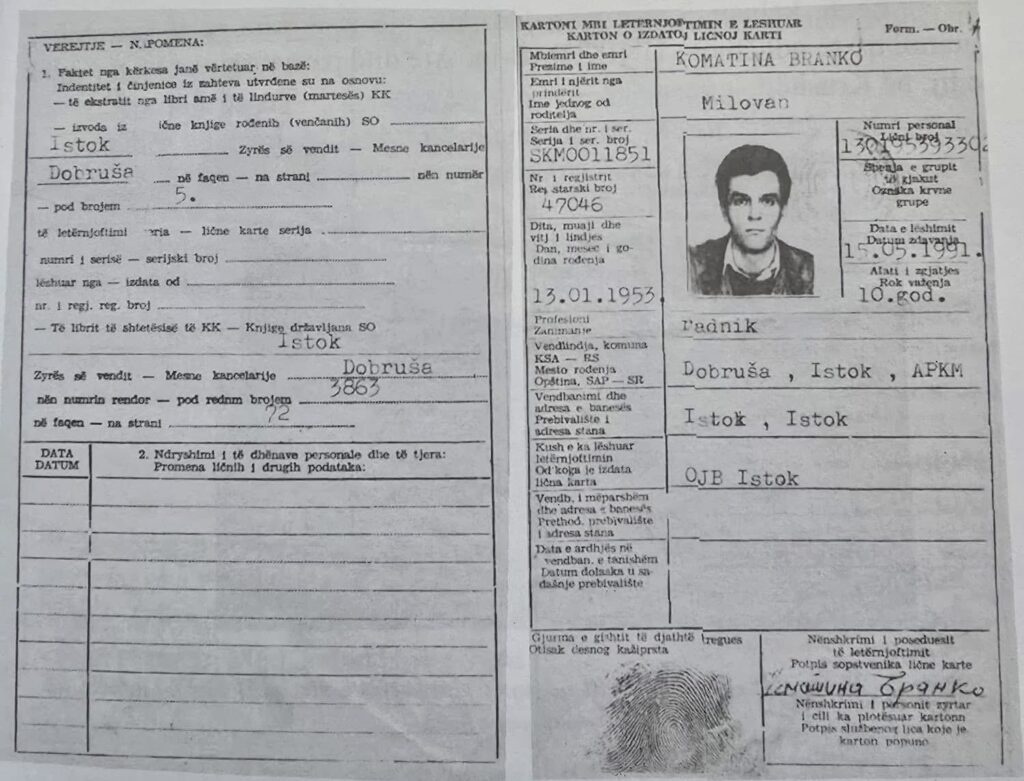 VEREJTJE — NAPOMENA:
1. Faktet nga kërkesa janë vërtetuar në bazë:
Indentitet i činjenice iz zahteva utvrđene su na osnovu:
— të ekstratit nga libri amë i të lindurve (martesës) KK
— izvoda iz ične knjige rođenih (venčanih) SO
Istok Zyrës së vendit — Mesne kancelarije
Dobruša në faqen — na strani nën numër
— pod brojem 5.
të letërnjoftimi eria — lične karte serija
numri i serisë — serijski broj
lëshuar nga — izdata od
nr. i regj. reg. broj
— Të librit të shtetësisë të KK — Knjige državljana SO
Istok
Zyrës së vendit — Mesne kancelarije Dobruša
nën numrin rendor — pod rednm brojem 3863
në faqen — na strani 72
DATA
DATUM
2. Ndryshimi i të dhënave personale dhe të tjera:
Promena ličnih i drugih podataka:
KARTONI MBI LETERNJOFTIMIN E LESHUAR
KARTON O IZDATOJ LIČNOJ KARTI
Form. — Obr.
Mbiemri dhe emri
Prezime i ime
KOMATINA BRANKO
Emri i njërit nga
prindërit
Ime jednog od
roditelja
Milovan
Seria dhe nr. i ser.
Serija i ser. broj
SKM0011851
Nr i regjistrit
Reg starski broj
47046
Dita, muaji dhe
vitj i lindjes
Dan, mesec i go-
dina rođenja
13.01.1953
Numri personal
Lični broj
130195393302
Shenja e grupit
të gjakut
Oznaka krvne
grupe
Data e lëshimit
Datum izdavanja
15.05.1991.
Afati i zgjatjes
Rok važenja
10.god.
Profesioni
Zanimanje
radnik
Vendlindja, komuna
KSA — RS
Mesto rođenja
Opština, SAP — SR
Dobruša , Istok , APKM
Vendbanimi dhe
adresa e banesës
Prebivalište i
adresa stana
Istok , Istok
Kush e ka lëshuar
letërnjoftimin
Od koga je izdata
lična karta
OJB Istok
Vendb. i mëparshëm
dhe adresa e banesës
Prethod. prebivalište
i adresa stana
Data e ardhjës në
vendban. e tanishëm
Datum dolaska u sa-
dašnje prebivalište
Gjurma e gishtit të djathtë tregues
Otisak desnog kažiprsta
Nënshkrimi i poseduesit
të letërnjoftimit
Potpis sopstvenika lične karte
Бранко
Nënshkrimi i personit zyrtar
i cili ka plotësuar kartonn
Potpis službenog lica koje je
karton popuno